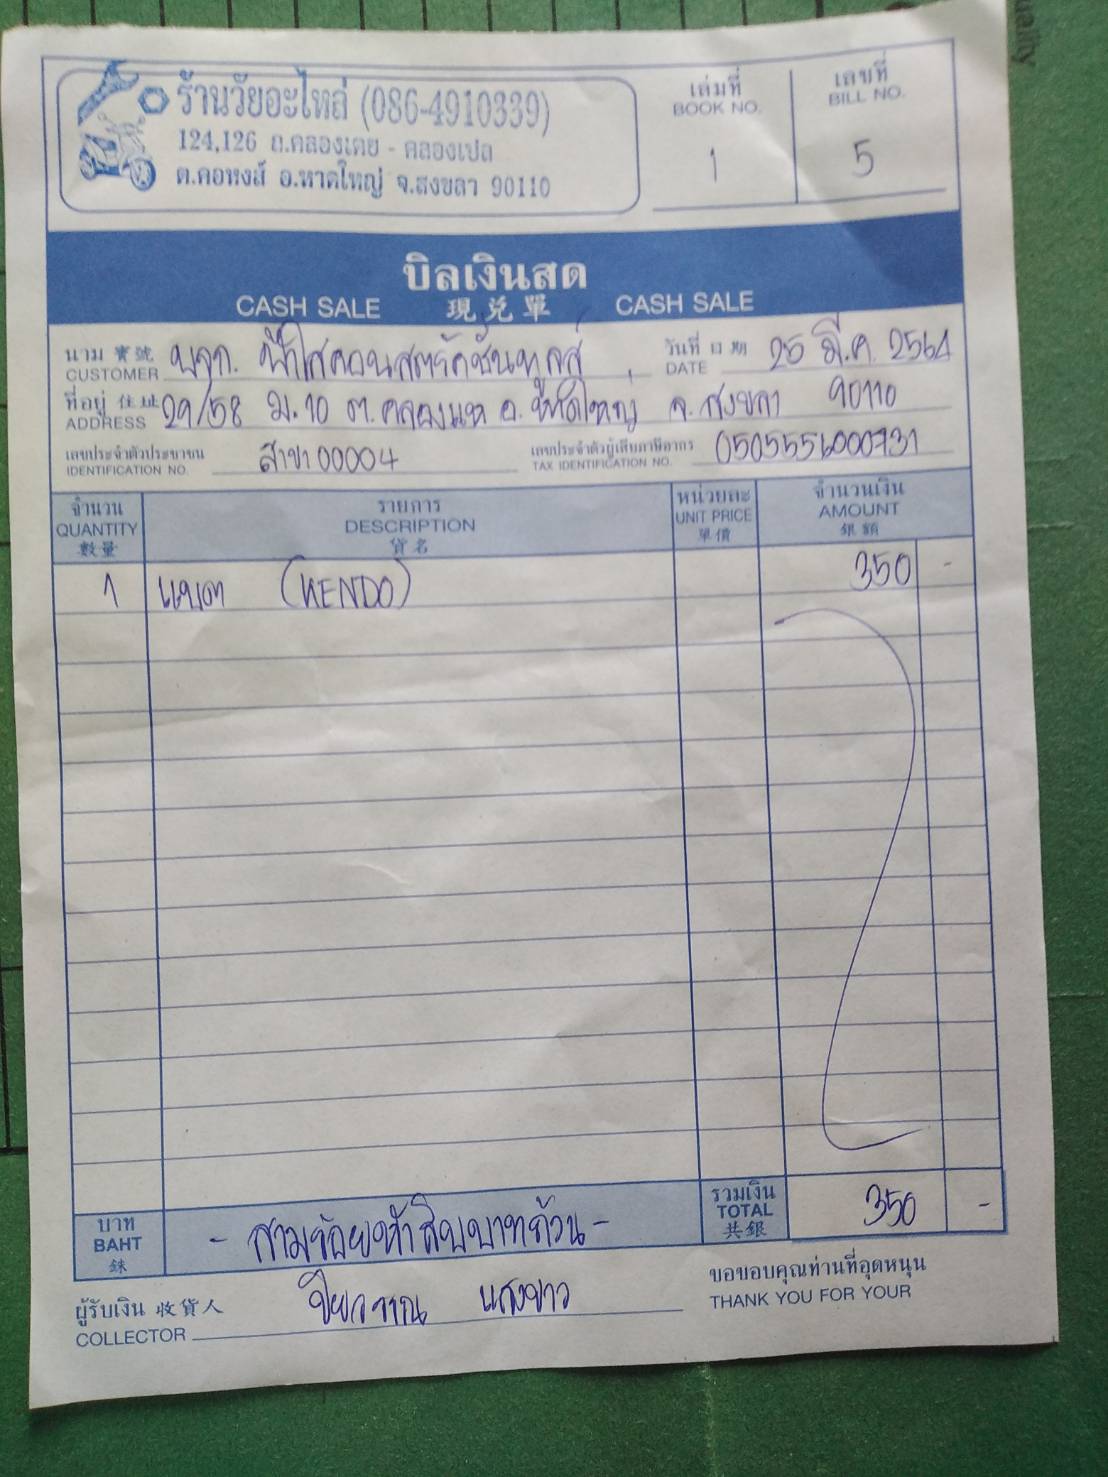 ร้านวัยอะไหล่ (086-4910339)
124,126 ถ.คลองเตย - คลองเปล
ต.คอหงส์ อ.หาดใหญ่ จ.สงขลา 90110
เล่มที่
BOOK NO.
1
เลขที่
BILL NO.
5
บิลเงินสด
CASH SALE 現兌單 CASH SALE
นาม 寶號 CUSTOMER บจก. ฟ้าใสคอนสตรัคชั่นทูลส์
วันที่ 日期 DATE 25 มี.ค. 2564
ที่อยู่ 住址 ADDRESS 29/58 ม.10 ต.คลองแห อ.หาดใหญ่ จ.สงขลา 90110
เลขประจำตัวประชาชน IDENTIFICATION NO. สาขา 00004
เลขประจำตัวผู้เสียภาษีอากร TAX IDENTIFICATION NO. 0505556000731
จำนวน QUANTITY 數量
รายการ DESCRIPTION 貨名
หน่วยละ UNIT PRICE 單價
จำนวนเงิน AMOUNT 銀額
1 (KENDO) 350 -
บาท BAHT 銖
- สามร้อยห้าสิบบาทถ้วน -
รวมเงิน TOTAL 共銀
350 -
ผู้รับเงิน 收貨人 COLLECTOR แสงขาว
ขอขอบคุณท่านที่อุดหนุน
THANK YOU FOR YOUR